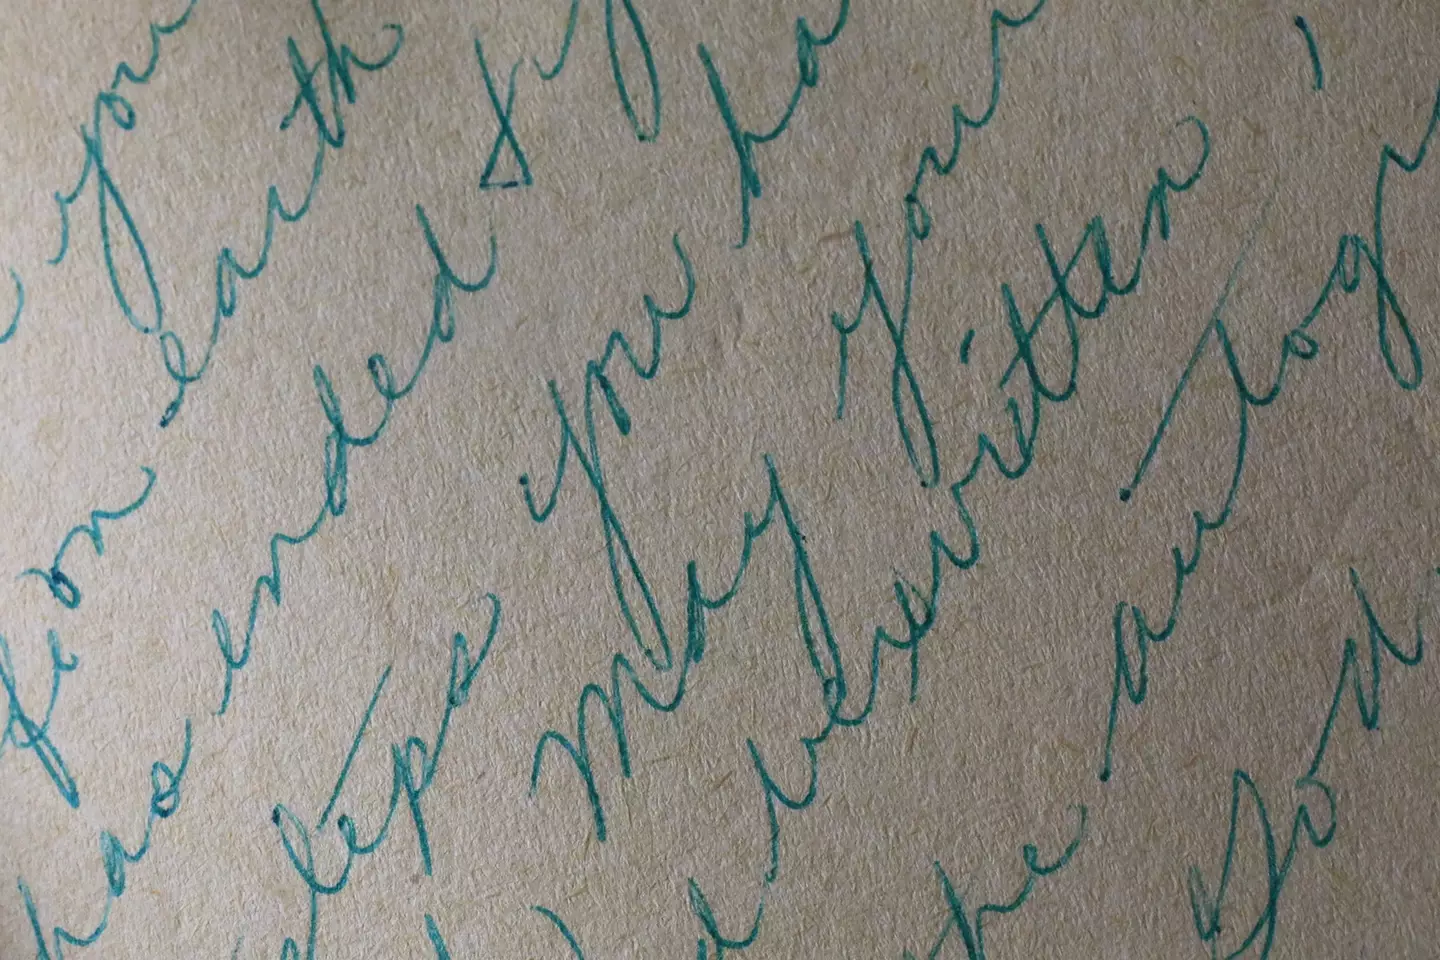 you
fe on earth
has ended &
teps you ha
May your
written
the autogr
God